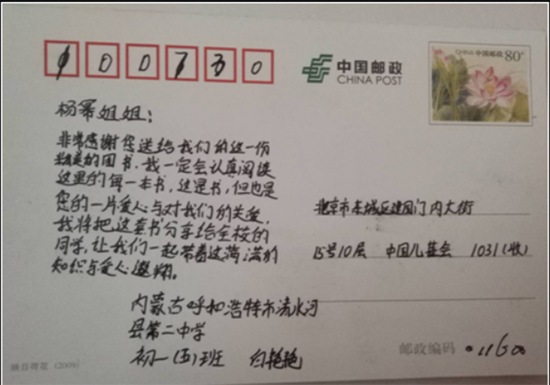 100730
中国邮政
CHINA POST
中国邮政 80分
杨幂姐姐：
非常感谢您送给我们的这一份
精美的图书，我一定会认真阅读
这里的每一本书，这是书，但也是
您的一片爱心与对我们的关爱，
我将把这套书分享给全校的
同学，让我们一起带着这满满的
知识与爱心遨翔。
内蒙古呼和浩特市清水河
县第二中学
初一(五)班 白艳艳
北京市东城区建国门内大街
15号10层 中国儿基会 1031(收)
邮政编码 011600
映日荷花 (2009)